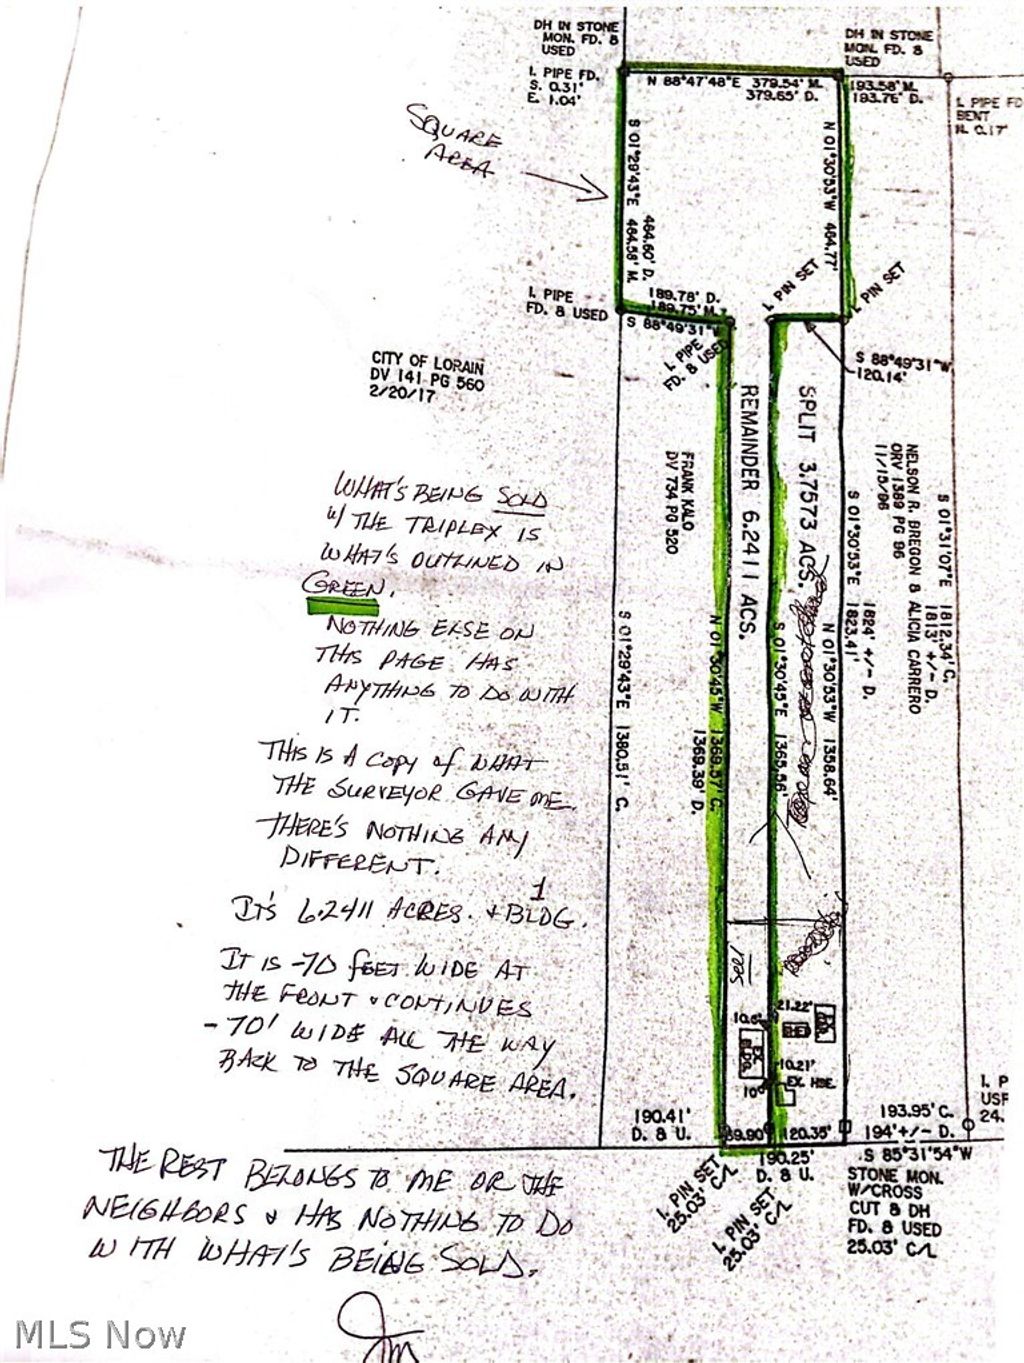 DH IN STONE
MON. FD. &
USED
DH IN STONE
MON. FD. &
USED
I. PIPE FD.
S. 0.31'
E. 1.04'
N 88°47'48"E 379.54' M.
379.65' D.
193.58' M.
193.76' D.
I. PIPE FD
BENT
N. 0.17'
SQUARE
AREA
S 01°29'43"E 464.58' M.
464.60' D.
N 01°30'53"W 464.77'
I. PIPE
FD. & USED
189.78' D.
189.75' M.
S 88°49'31"W
I. PIPE
FD. & USED
I. PIN SET
I. PIN SET
S 88°49'31"W
120.14'
CITY OF LORAIN
DV 141 PG 560
2/20/17
FRANK KALO
DV 734 PG 520
REMAINDER 6.2411 ACS.
SPLIT 3.7573 ACS.
NELSON R. BREGON & ALICIA CARRERO
ORV 1389 PG 96
11/15/96
S 01°31'07"E 1812.34' C.
1813' +/- D.
S 01°30'53"E 1823.41'
1824' +/- D.
S 01°29'43"E 1380.51' C.
N 01°30'45"W 1369.57' C.
1369.39' D.
S 01°30'45"E 1365.56'
N 01°30'53"W 1358.64'
WHAT'S BEING SOLD
W/ THE TRIPLEX IS
WHAT'S OUTLINED IN
GREEN.
NOTHING ELSE ON
THIS PAGE HAS
ANYTHING TO DO WITH
IT.
THIS IS A COPY OF WHAT
THE SURVEYOR GAVE ME.
THERE'S NOTHING ANY
DIFFERENT.
IT'S 6.2411 ACRES. & 1 BLDG.
IT IS -70 FEET WIDE AT
THE FRONT & CONTINUES
-70' WIDE ALL THE WAY
BACK TO THE SQUARE AREA.
10.6'
21.22'
EX.
BLDG.
10.21'
EX. HSE.
190.41'
D. & U.
69.90'
120.35'
193.95' C.
194' +/- D.
190.25'
D. & U.
S 85°31'54"W
I. P
USF
24.
I. PIN SET
25.03' C/L
I. PIN SET
25.03' C/L
STONE MON.
W/CROSS
CUT & DH
FD. & USED
25.03' C/L
THE REST BELONGS TO ME OR THE
NEIGHBORS & HAS NOTHING TO DO
WITH WHAT'S BEING SOLD.
MLS Now